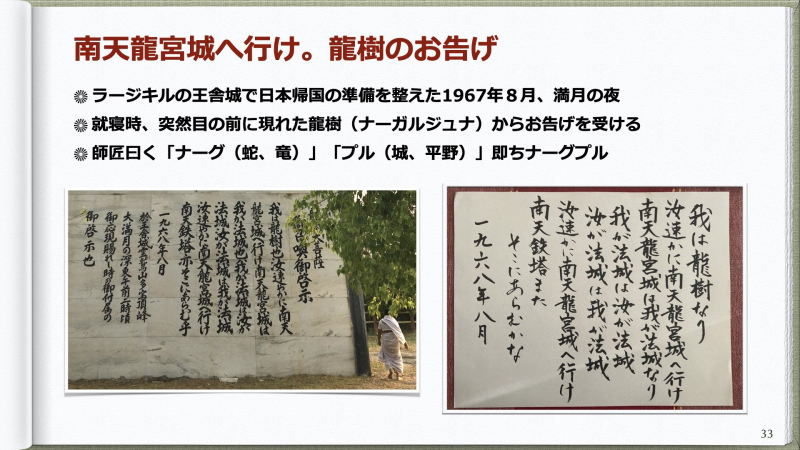 南天龍宮城へ行け。龍樹のお告げ
ラージキルの王舎城で日本帰国の準備を整えた1967年８月、満月の夜
就寝時、突然目の前に現れた龍樹（ナーガルジュナ）からお告げを受ける
師匠曰く「ナーグ（蛇、竜）」「プル（城、平野）」即ちナーグプル
御啓示
我は龍樹也汝速かに南天
龍宮城へ行け南天龍宮城は
我が法城也我が法城は汝が
法城汝が法城は我が法城
汝速かに南天龍宮城へ行け
南天鉄塔亦そこにあらむ乎
一九六八年八月
大満月の深更午前二時頃
御啓示也
我は龍樹なり
汝速かに南天龍宮城へ行け
南天龍宮城は我が法城なり
我が法城は汝が法城
汝が法城は我が法城
汝速かに南天龍宮城へ行け
南天鉄塔また
そこにあらむかな
一九六八年八月
33